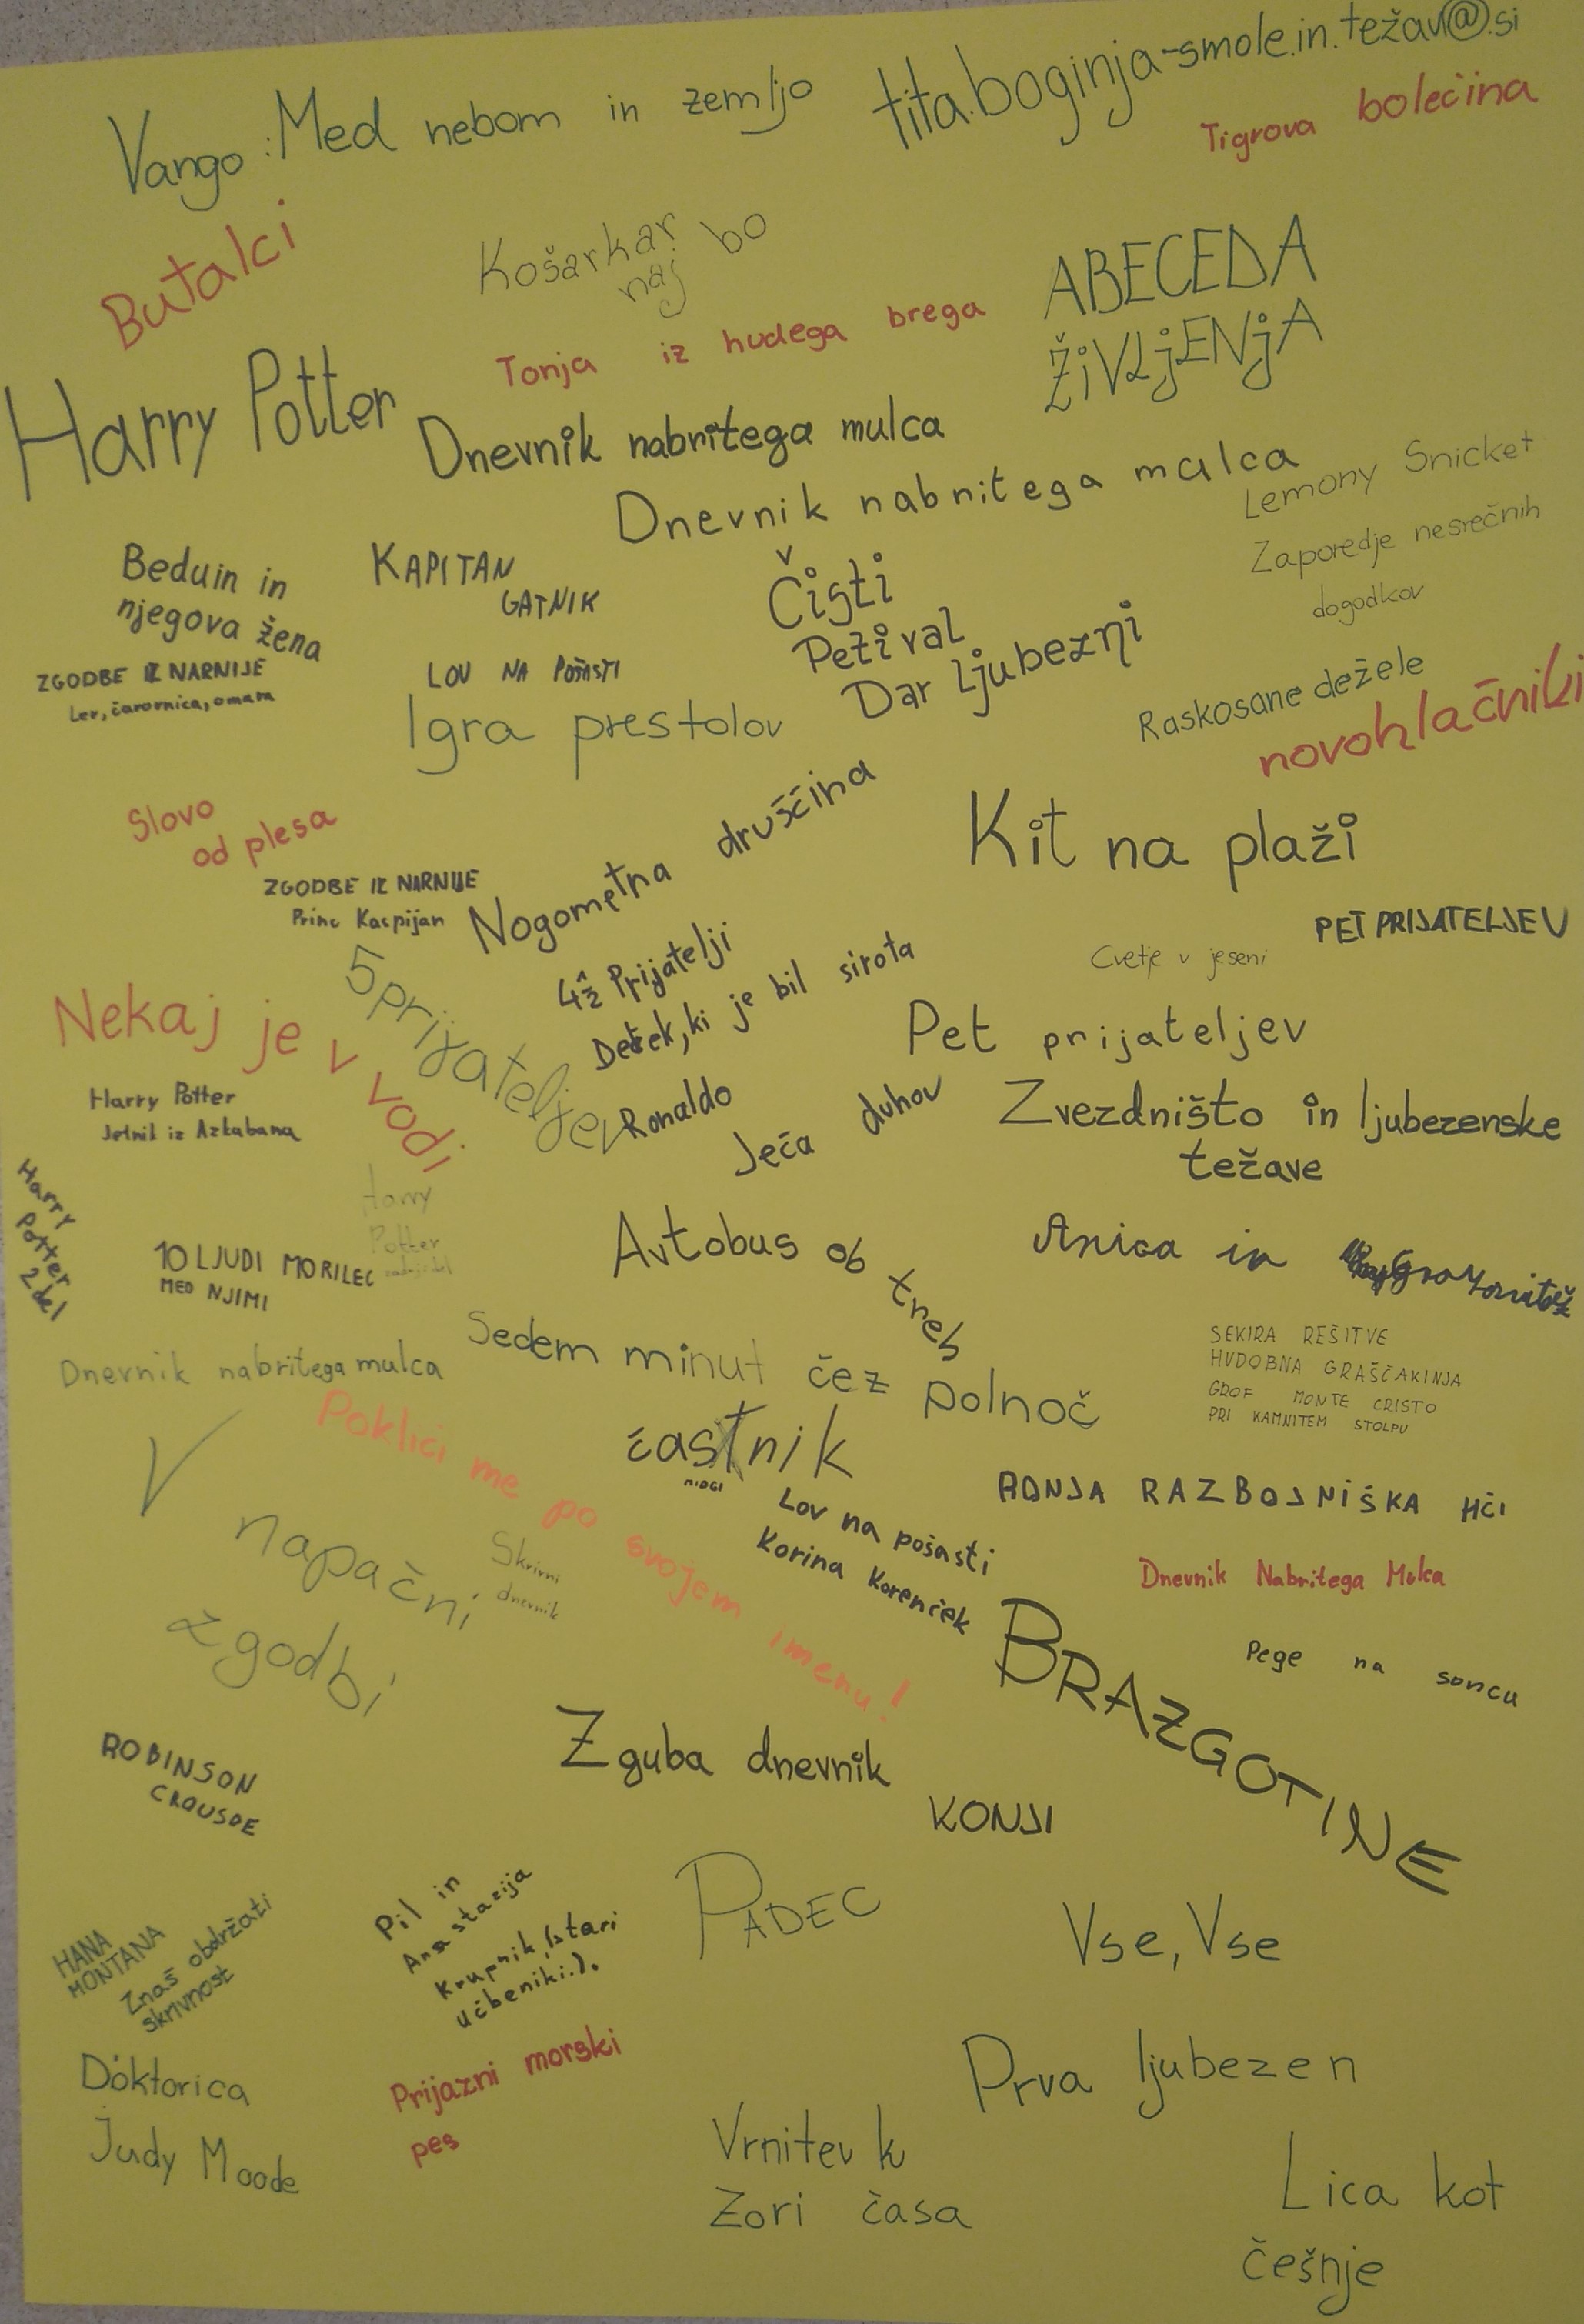 Vango: Med nebom in zemljo
tita.boginja-smole.in.težav@.si
Tigrova bolečina
Butalci
Košarkar
naj bo
Tonja iz hudega brega
ABECEDA
ŽIVLJENJA
Harry Potter
Dnevnik nabritega mulca
Dnevnik nabritega mulca
Lemony Snicket
Zaporedje nesrečnih
dogodkov
Beduin in
njegova žena
KAPITAN
GATNIK
Čisti
Petival
Dar ljubezni
ZGODBE IZ NARNIJE
Lev, čarovnica, omara
LOV NA POŠASTI
Igra prestolov
Raskosane dežele
novohlačniki
Slovo
od plesa
Kit na plaži
ZGODBE IZ NARNIJE
Princ Kaspijan
Nogometna druščina
PET PRIJATELJEV
4 1/2 Prijatelji
Cvetje v jeseni
Deček, ki je bil sirota
5 prijateljev
Nekaj je v vodi
Pet prijateljev
Harry Potter
Jetnik iz Azkabana
Ronaldo
Ječa duhov
Zvezdništo in ljubezenske
težave
Harry
Potter
2 del
Harry
Potter
10 LJUDI MORILEC
MED NJIMI
Avtobus ob treh
Anica in
Sedem minut čez polnoč
SEKIRA REŠITVE
HUDOBNA GRAŠČAKINJA
GROF MONTE CRISTO
PRI KAMNITEM STOLPU
Dnevnik nabritega mulca
Pokliči me po svojem imenu!
častnik
V
napačni
zgodbi
Skrivni
dnevnik
Lov na pošasti
Korina Korenček
RONJA RAZBOJNIŠKA HČI
Dnevnik Nabritega Mulca
BRAZGOTINE
Pege na soncu
ROBINSON
CROUSOE
Zguba dnevnik
KONJI
Pil in
Anastazija
Krupnik, (stari
učbeniki.).
PADEC
Vse, Vse
HANA
MONTANA
Znaš obdržati
skrivnost
Doktorica
Judy Moode
Prijazni morski
pes
Prva ljubezen
Vrnitev k
Zori časa
Lica kot
češnje